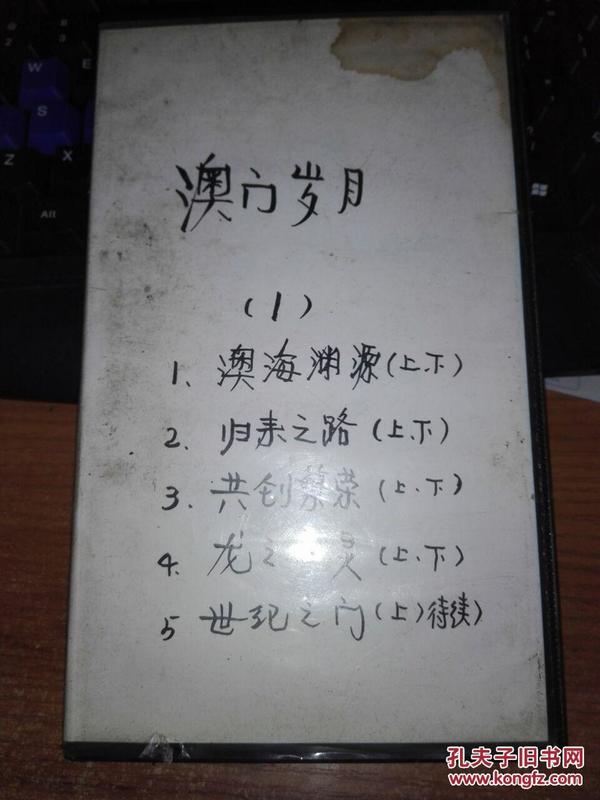 W
E
S
Z
X
Alt
澳门岁月
(1)
1、澳海渊源(上、下)
2、归来之路(上、下)
3、共创繁荣(上、下)
4、龙之(上、下)
5 世纪之门(上)待续)
孔夫子旧书网
www.kongfz.com